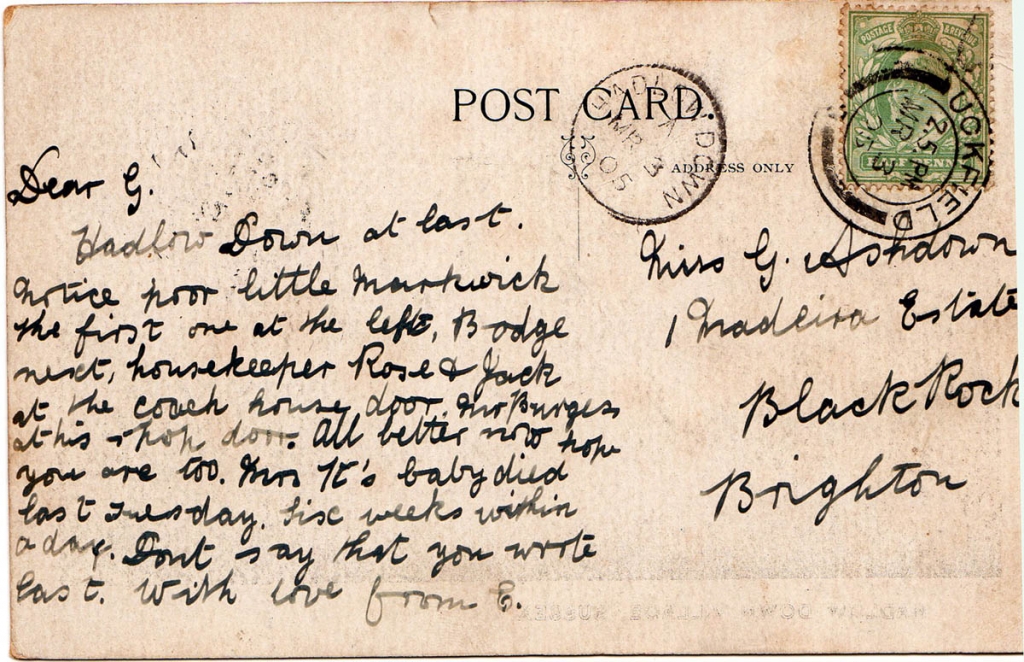 POST CARD.
ADDRESS ONLY
HADLOW DOWN
A
MR 3
05
UCKFIELD
2.5 PM
MR 3
05
POSTAGE & REVENUE
HALFPENNY
Dear G.
Hadlow Down at last.
Notice poor little Markwick
the first one at the left, Bodge
next, housekeeper Rose & Jack
at the coach house door. Mr Burgess
at his shop door. All better now hope
you are too. Mrs K's baby died
last Tuesday. Six weeks within
a day. Dont say that you wrote
last. With love from E.
Miss G. Ashdown
1 Madeira Estate
Black Rock
Brighton
HADLOW DOWN VILLAGE SUSSEX